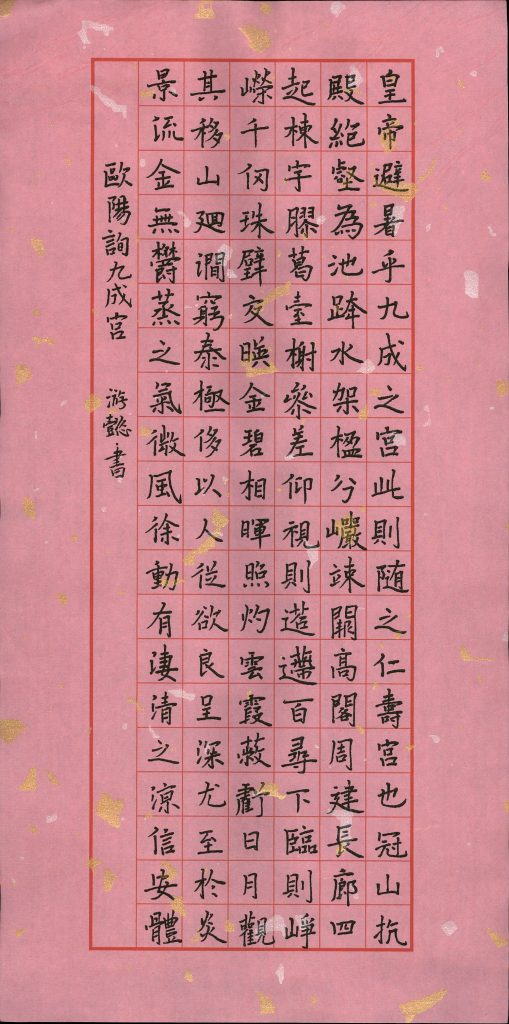 皇帝避暑乎九成之宮此則随之仁壽宮也冠山抗
殿絶壑為池跨水架楹分巖竦闕高閣周建長廊四
起棟宇膠葛臺榭參差仰視則迢遰百尋下臨則崢
嶸千仞珠璧交暎金碧相暉照灼雲霞蔽虧日月觀
其移山廻澗窮泰極侈以人從欲良足深尤至於炎
景流金無鬱蒸之氣微風徐動有淒清之涼信安體
歐陽詢九成宮 游懿書